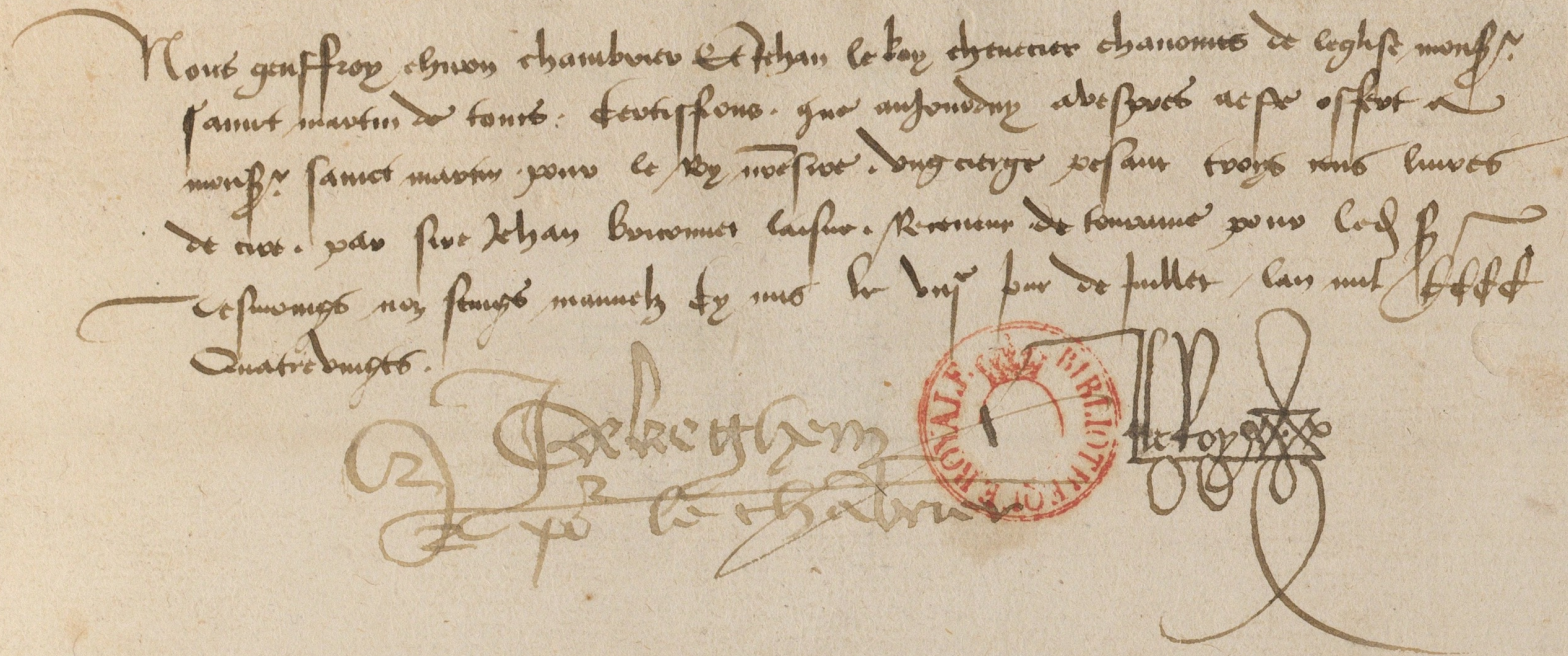 Nous geuffroy chiron chambrier Et Jehan le Roy chevecier chanoines de leglise monsr
sainct martin de tours. Certiffions. que aujourduy a vespres a este offert a
monsr sainct martin pour le Roy nresire. ung cierge pesant troys cens livres
de cire. par sire Jehan briconnet laisne. Receveur de touraine pour led sr
Tesmoings noz seings manuelz Cy mis le viije jour de Juillet lan mil CCCC
Quatrevingts.
J de okeghem
po le chabrier
le Roy
BIBLIOTHEQUE ROYALE